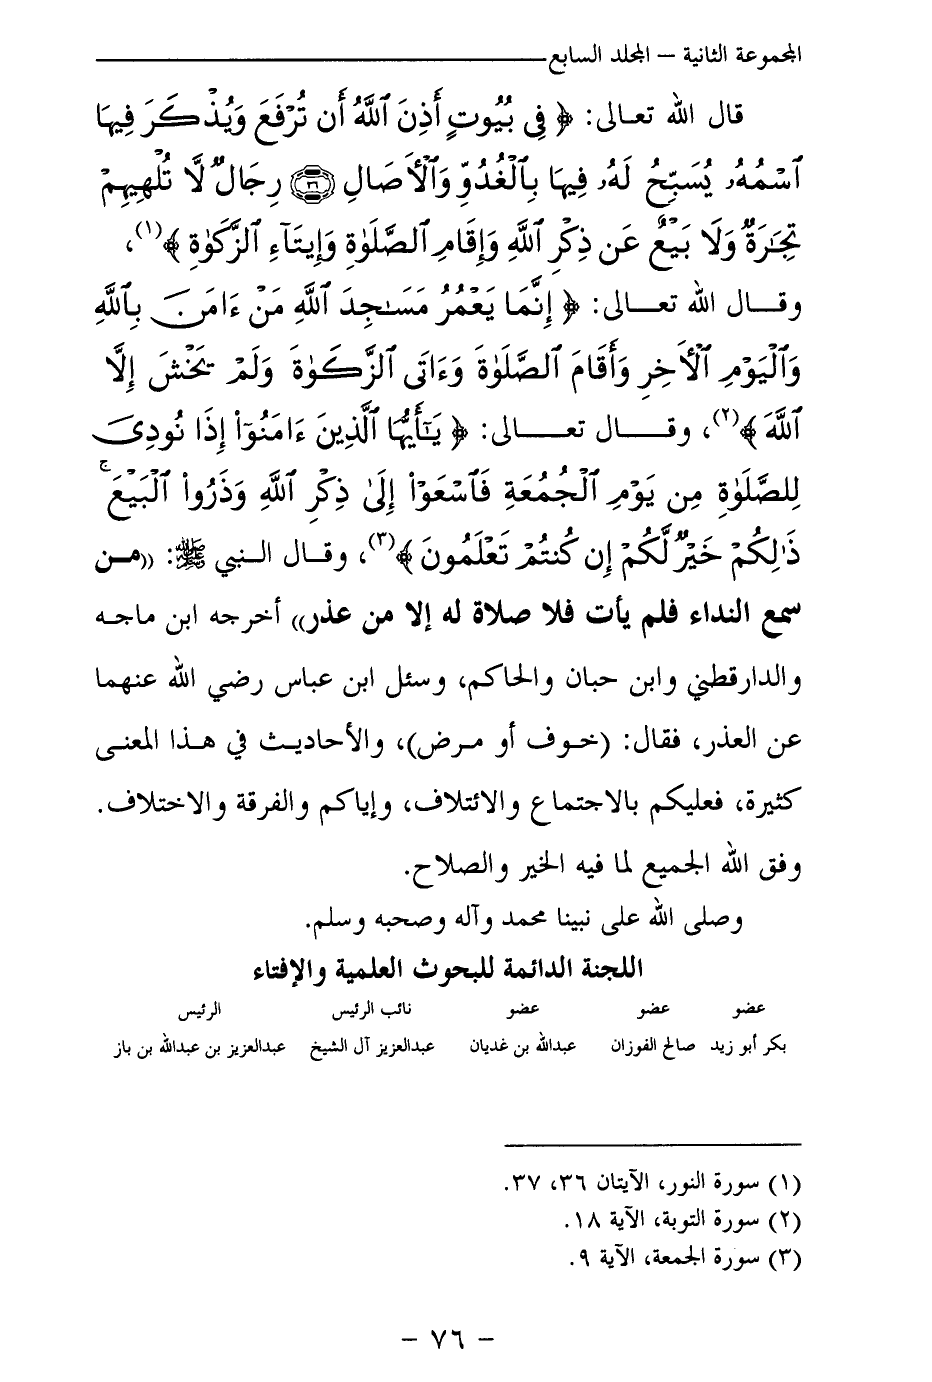 المجموعة الثانية – المجلد السابع
قال الله تعالى: ﴿ فِي بُيُوتٍ أَذِنَ ٱللَّهُ أَن تُرْفَعَ وَيُذْكَرَ فِيهَا
ٱسْمُهُۥ يُسَبِّحُ لَهُۥ فِيهَا بِٱلْغُدُوِّ وَٱلْأَصَالِ ﴿٣٦﴾ رِجَالٌ لَّا تُلْهِيهِمْ
تِجَٰرَةٌ وَلَا بَيْعٌ عَن ذِكْرِ ٱللَّهِ وَإِقَامِ ٱلصَّلَوٰةِ وَإِيتَآءِ ٱلزَّكَوٰةِ ﴾(١)،
وقال الله تعالى: ﴿ إِنَّمَا يَعْمُرُ مَسَٰجِدَ ٱللَّهِ مَنْ ءَامَنَ بِٱللَّهِ
وَٱلْيَوْمِ ٱلْأَخِرِ وَأَقَامَ ٱلصَّلَوٰةَ وَءَاتَى ٱلزَّكَوٰةَ وَلَمْ يَخْشَ إِلَّا
ٱللَّهَ ﴾(٢)، وقال تعالى: ﴿ يَٰٓأَيُّهَا ٱلَّذِينَ ءَامَنُوٓا۟ إِذَا نُودِىَ
لِلصَّلَوٰةِ مِن يَوْمِ ٱلْجُمُعَةِ فَٱسْعَوْا۟ إِلَىٰ ذِكْرِ ٱللَّهِ وَذَرُوا۟ ٱلْبَيْعَ ۚ
ذَٰلِكُمْ خَيْرٌ لَّكُمْ إِن كُنتُمْ تَعْلَمُونَ ﴾(٣)، وقال النبي ﷺ: ((من
سمع النداء فلم يأت فلا صلاة له إلا من عذر)) أخرجه ابن ماجه
والدارقطني وابن حبان والحاكم، وسئل ابن عباس رضي الله عنهما
عن العذر، فقال: (خوف أو مرض)، والأحاديث في هذا المعنى
كثيرة، فعليكم بالاجتماع والائتلاف، وإياكم والفرقة والاختلاف.
وفق الله الجميع لما فيه الخير والصلاح.
وصلى الله على نبينا محمد وآله وصحبه وسلم.
اللجنة الدائمة للبحوث العلمية والإفتاء
عضو عضو عضو نائب الرئيس الرئيس
بكر أبو زيد صالح الفوزان عبدالله بن غديان عبدالعزيز آل الشيخ عبدالعزيز بن عبدالله بن باز
(١) سورة النور، الآيتان ٣٦، ٣٧.
(٢) سورة التوبة، الآية ١٨.
(٣) سورة الجمعة، الآية ٩.
– ٧٦ –